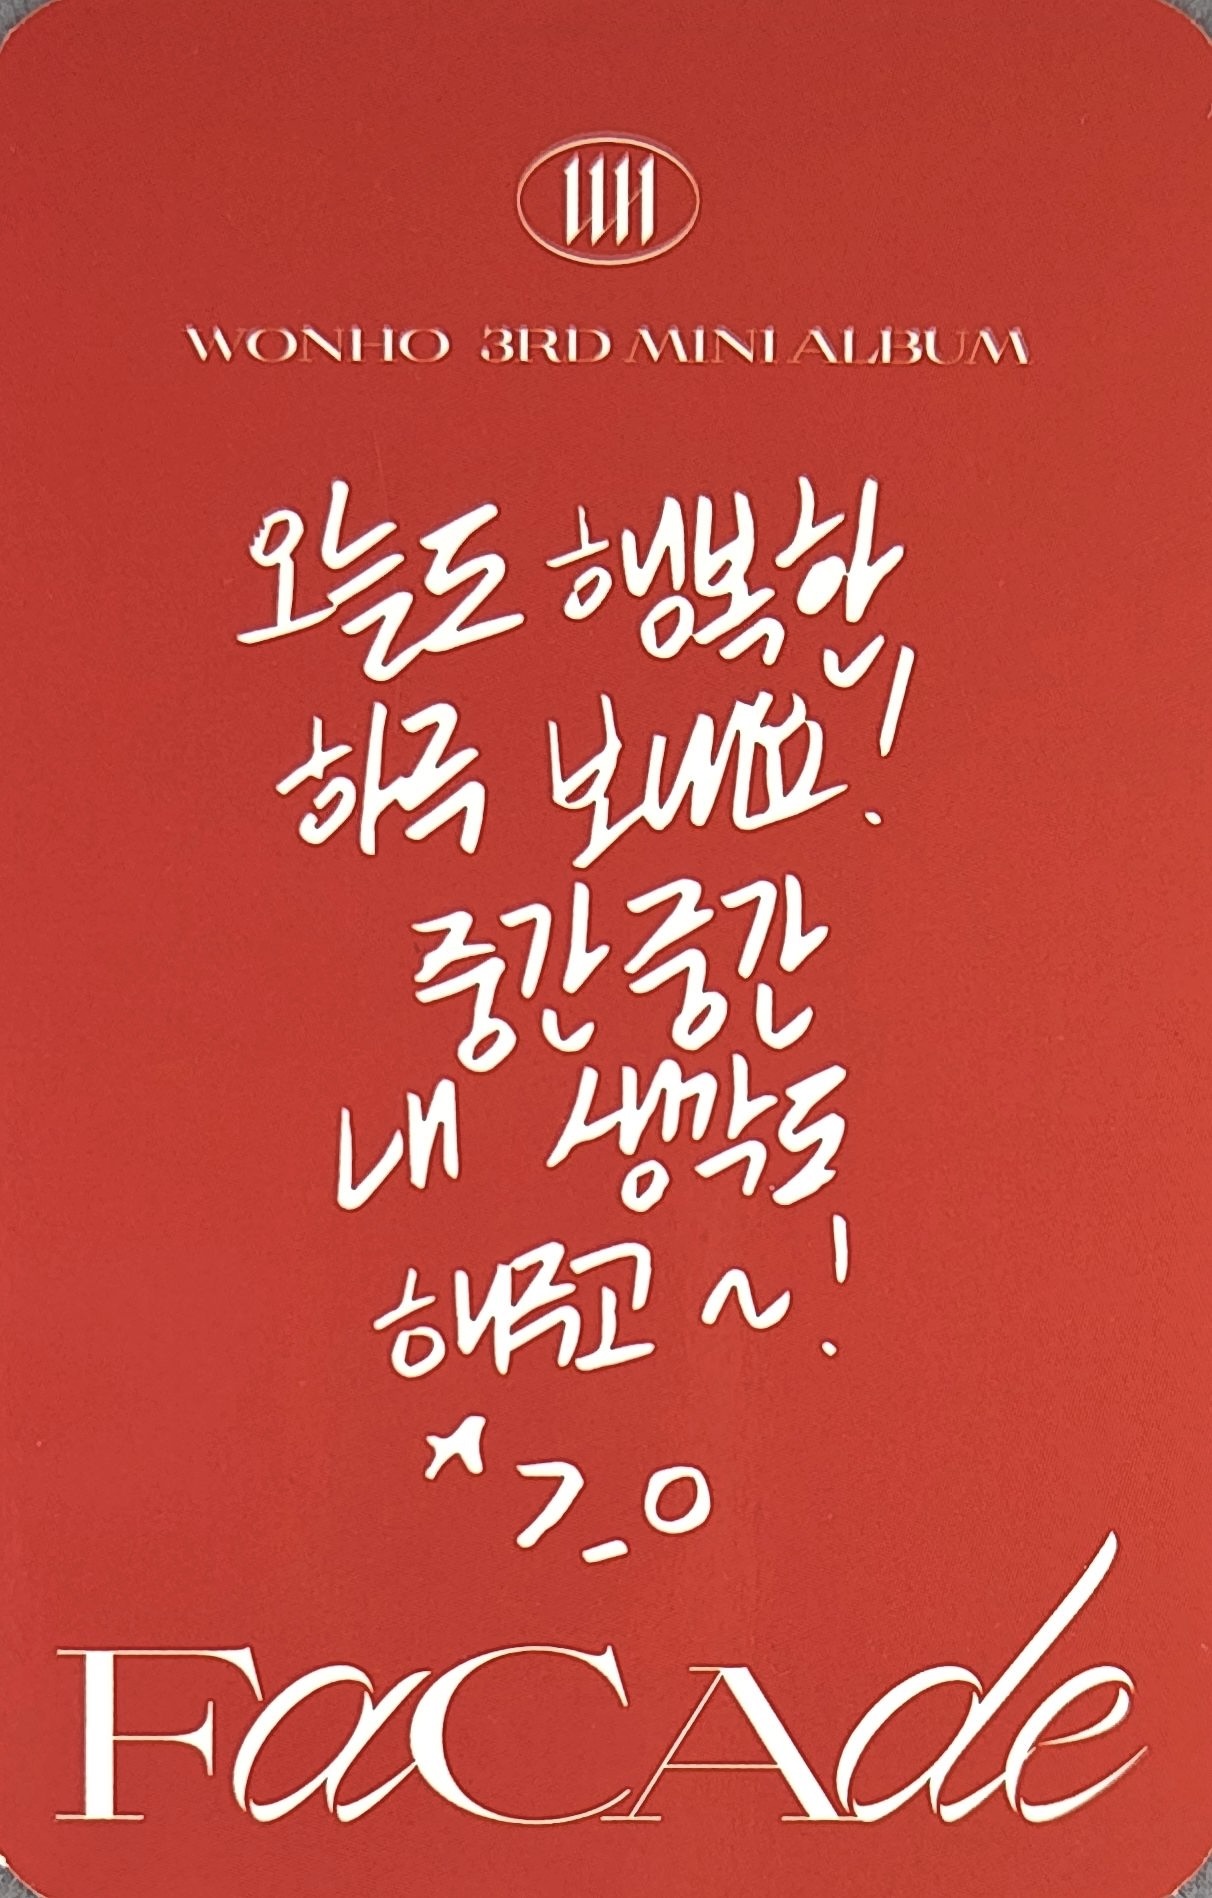 WH
WONHO 3RD MINI ALBUM
오늘도 행복한
하루 보내요!
중간중간
내 생각도
해주고 ~!
FaCAde